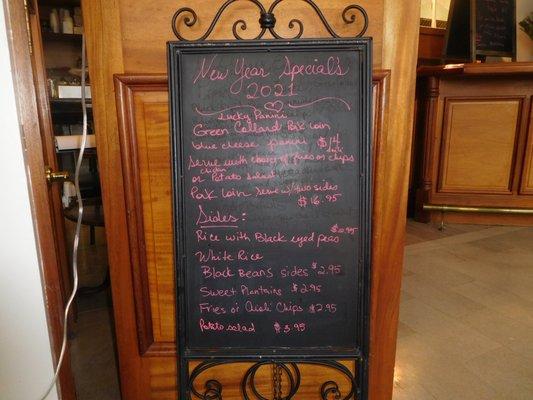 New Year Special's
2021
Lucky Panini
Green Collard Pork loin
blue cheese panini $14
Serve with choice of fries or chips
or Potato salad
Pork Loin Serve w/two sides
$16.95
Sides:
Rice with Black eyed peas
White Rice
Black Beans sides $2.95
Sweet Plantains $2.95
Fries or Chips $2.95
Potato salad $3.95